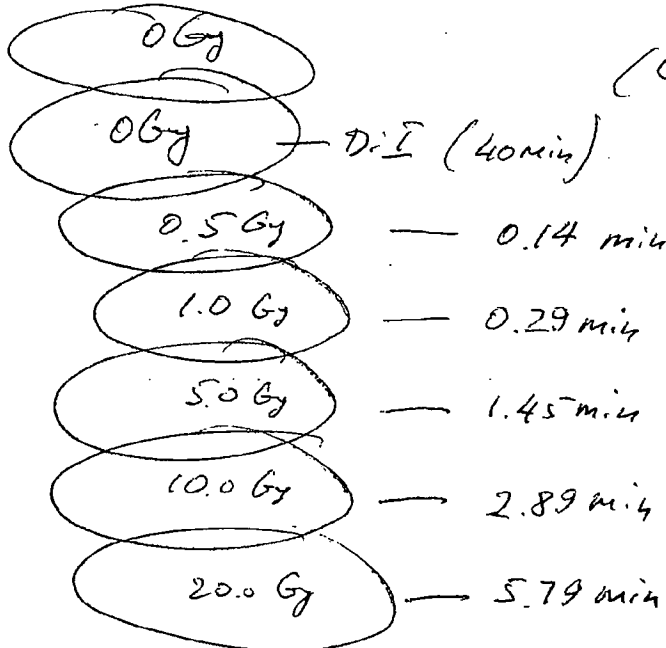 0 Gy
0 Gy — DiI (40 min)
0.5 Gy — 0.14 min
1.0 Gy — 0.29 min
5.0 Gy — 1.45 min
10.0 Gy — 2.89 min
20.0 Gy — 5.79 min